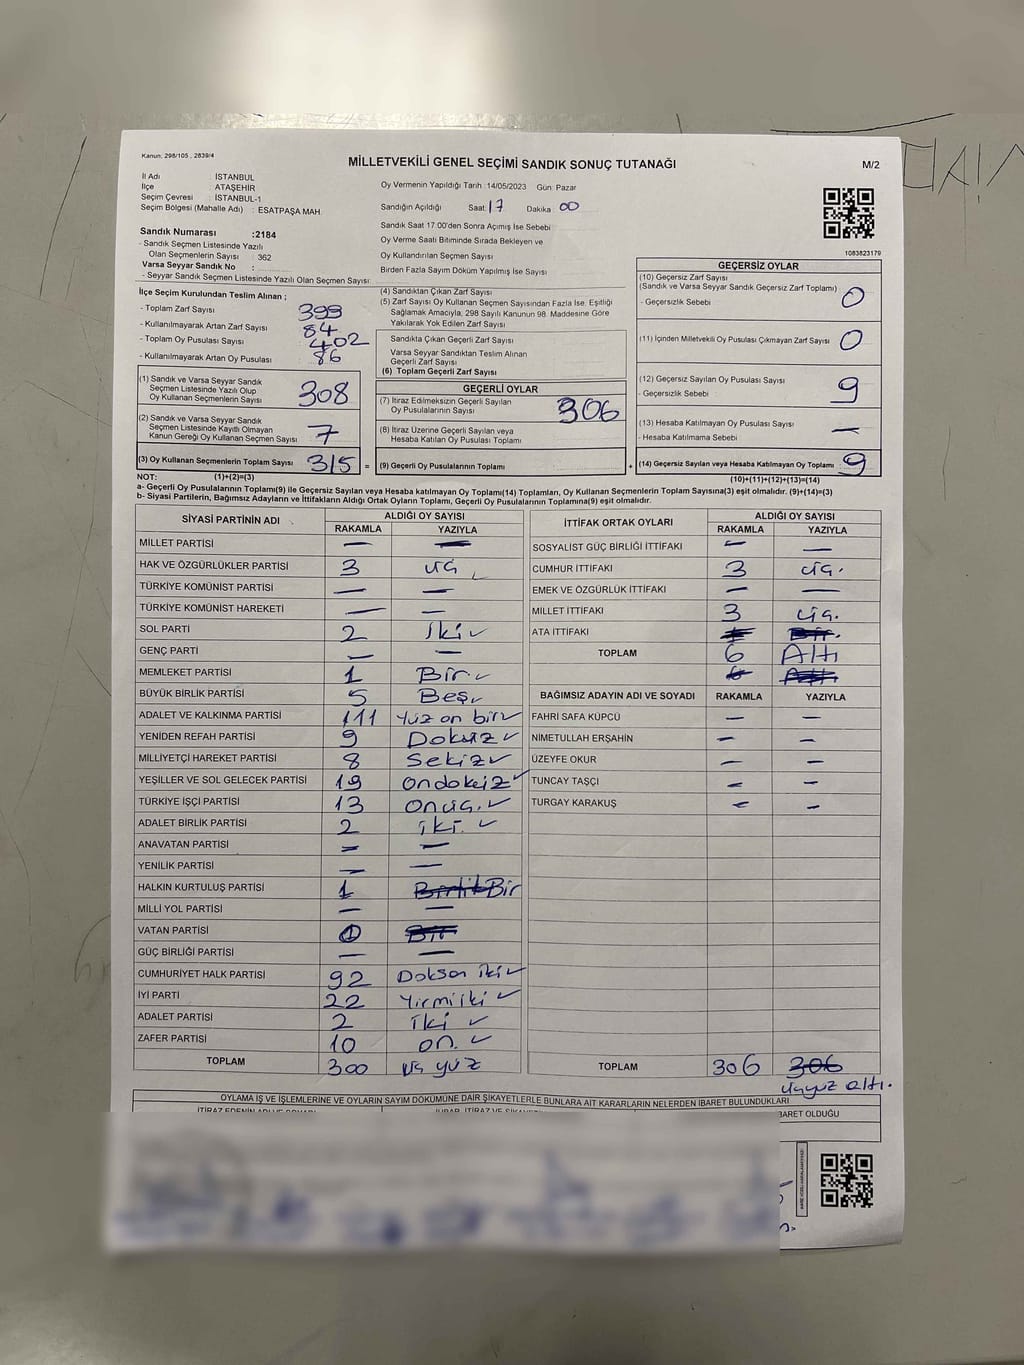 Kanun, 298/105 , 2839/4
MİLLETVEKİLİ GENEL SEÇİMİ SANDIK SONUÇ TUTANAĞI
M/2
İl Adı : İSTANBUL
İlçe : ATAŞEHİR
Seçim Çevresi : İSTANBUL-1
Seçim Bölgesi (Mahalle Adı) : ESATPAŞA MAH.
Oy Vermenin Yapıldığı Tarih :14/05/2023 Gün: Pazar
Sandığın Açıldığı Saat: 17 Dakika : 00
Sandık Saat 17:00'den Sonra Açılmış İse Sebebi
Oy Verme Saati Bitiminde Sırada Bekleyen ve
Oy Kullandırılan Seçmen Sayısı
Birden Fazla Sayım Döküm Yapılmış İse Sayısı
Sandık Numarası :2184
- Sandık Seçmen Listesinde Yazılı
Olan Seçmenlerin Sayısı : 362
Varsa Seyyar Sandık No :
- Seyyar Sandık Seçmen Listesinde Yazılı Olan Seçmen Sayısı:
1083823179
İlçe Seçim Kurulundan Teslim Alınan ;
- Toplam Zarf Sayısı 399
- Kullanılmayarak Artan Zarf Sayısı 84
- Toplam Oy Pusulası Sayısı 402
- Kullanılmayarak Artan Oy Pusulası 86
(1) Sandık ve Varsa Seyyar Sandık
Seçmen Listesinde Yazılı Olup
Oy Kullanan Seçmenlerin Sayısı 308
(2) Sandık ve Varsa Seyyar Sandık
Seçmen Listesinde Kayıtlı Olmayan
Kanun Gereği Oy Kullanan Seçmen Sayısı 7
(3) Oy Kullanan Seçmenlerin Toplam Sayısı 315 =
(4) Sandıktan Çıkan Zarf Sayısı
(5) Zarf Sayısı Oy Kullanan Seçmen Sayısından Fazla İse, Eşitliği
Sağlamak Amacıyla, 298 Sayılı Kanunun 98. Maddesine Göre
Yakılarak Yok Edilen Zarf Sayısı
Sandıkta Çıkan Geçerli Zarf Sayısı
Varsa Seyyar Sandıktan Teslim Alınan
Geçerli Zarf Sayısı
(6) Toplam Geçerli Zarf Sayısı
GEÇERLİ OYLAR
(7) İtiraz Edilmeksizin Geçerli Sayılan
Oy Pusulalarının Sayısı 306
(8) İtiraz Üzerine Geçerli Sayılan veya
Hesaba Katılan Oy Pusulası Toplamı
(9) Geçerli Oy Pusulalarının Toplamı +
GEÇERSİZ OYLAR
(10) Geçersiz Zarf Sayısı
(Sandık ve Varsa Seyyar Sandık Geçersiz Zarf Toplamı) 0
- Geçersizlik Sebebi :
(11) İçinden Milletvekili Oy Pusulası Çıkmayan Zarf Sayısı 0
(12) Geçersiz Sayılan Oy Pusulası Sayısı 9
- Geçersizlik Sebebi :
(13) Hesaba Katılmayan Oy Pusulası Sayısı —
- Hesaba Katılmama Sebebi
(14) Geçersiz Sayılan veya Hesaba Katılmayan Oy Toplamı 9
NOT: (1)+(2)=(3) (10)+(11)+(12)+(13)=(14)
a- Geçerli Oy Pusulalarının Toplamı(9) ile Geçersiz Sayılan veya Hesaba katılmayan Oy Toplamı(14) Toplamları, Oy Kullanan Seçmenlerin Toplam Sayısına(3) eşit olmalıdır. (9)+(14)=(3)
b- Siyasi Partilerin, Bağımsız Adayların ve İttifakların Aldığı Ortak Oyların Toplamı, Geçerli Oy Pusulalarının Toplamına(9) eşit olmalıdır.
SİYASİ PARTİNİN ADI ALDIĞI OY SAYISI
RAKAMLA YAZIYLA
MİLLET PARTİSİ — —
HAK VE ÖZGÜRLÜKLER PARTİSİ 3 üç
TÜRKİYE KOMÜNİST PARTİSİ — —
TÜRKİYE KOMÜNİST HAREKETİ — —
SOL PARTİ 2 iki ✓
GENÇ PARTİ — —
MEMLEKET PARTİSİ 1 Bir ✓
BÜYÜK BİRLİK PARTİSİ 5 Beş ✓
ADALET VE KALKINMA PARTİSİ 111 Yüz on bir ✓
YENİDEN REFAH PARTİSİ 9 Dokuz ✓
MİLLİYETÇİ HAREKET PARTİSİ 8 Sekiz ✓
YEŞİLLER VE SOL GELECEK PARTİSİ 19 ondokuz ✓
TÜRKİYE İŞÇİ PARTİSİ 13 Onüç. ✓
ADALET BİRLİK PARTİSİ 2 iki. ✓
ANAVATAN PARTİSİ = —
YENİLİK PARTİSİ — —
HALKIN KURTULUŞ PARTİSİ 1 Bir
MİLLİ YOL PARTİSİ — —
VATAN PARTİSİ
GÜÇ BİRLİĞİ PARTİSİ — —
CUMHURİYET HALK PARTİSİ 92 Doksan iki ✓
İYİ PARTİ 22 Yirmi iki ✓
ADALET PARTİSİ 2 iki ✓
ZAFER PARTİSİ 10 on. ✓
TOPLAM 300 üç yüz
İTTİFAK ORTAK OYLARI ALDIĞI OY SAYISI
RAKAMLA YAZIYLA
SOSYALİST GÜÇ BİRLİĞİ İTTİFAKI — —
CUMHUR İTTİFAKI 3 üç.
EMEK VE ÖZGÜRLÜK İTTİFAKI — —
MİLLET İTTİFAKI 3 üç.
ATA İTTİFAKI
TOPLAM 6 Altı
BAĞIMSIZ ADAYIN ADI VE SOYADI RAKAMLA YAZIYLA
FAHRİ SAFA KÜPCÜ — —
NİMETULLAH ERŞAHİN — —
ÜZEYFE OKUR — —
TUNCAY TAŞÇI — —
TURGAY KARAKUŞ — —
TOPLAM 306 306
üçyüz altı.
OYLAMA İŞ VE İŞLEMLERİNE VE OYLARIN SAYIM DÖKÜMÜNE DAİR ŞİKAYETLERLE BUNLARA AİT KARARLARIN NELERDEN İBARET BULUNDUKLARI
İBARET OLDUĞU